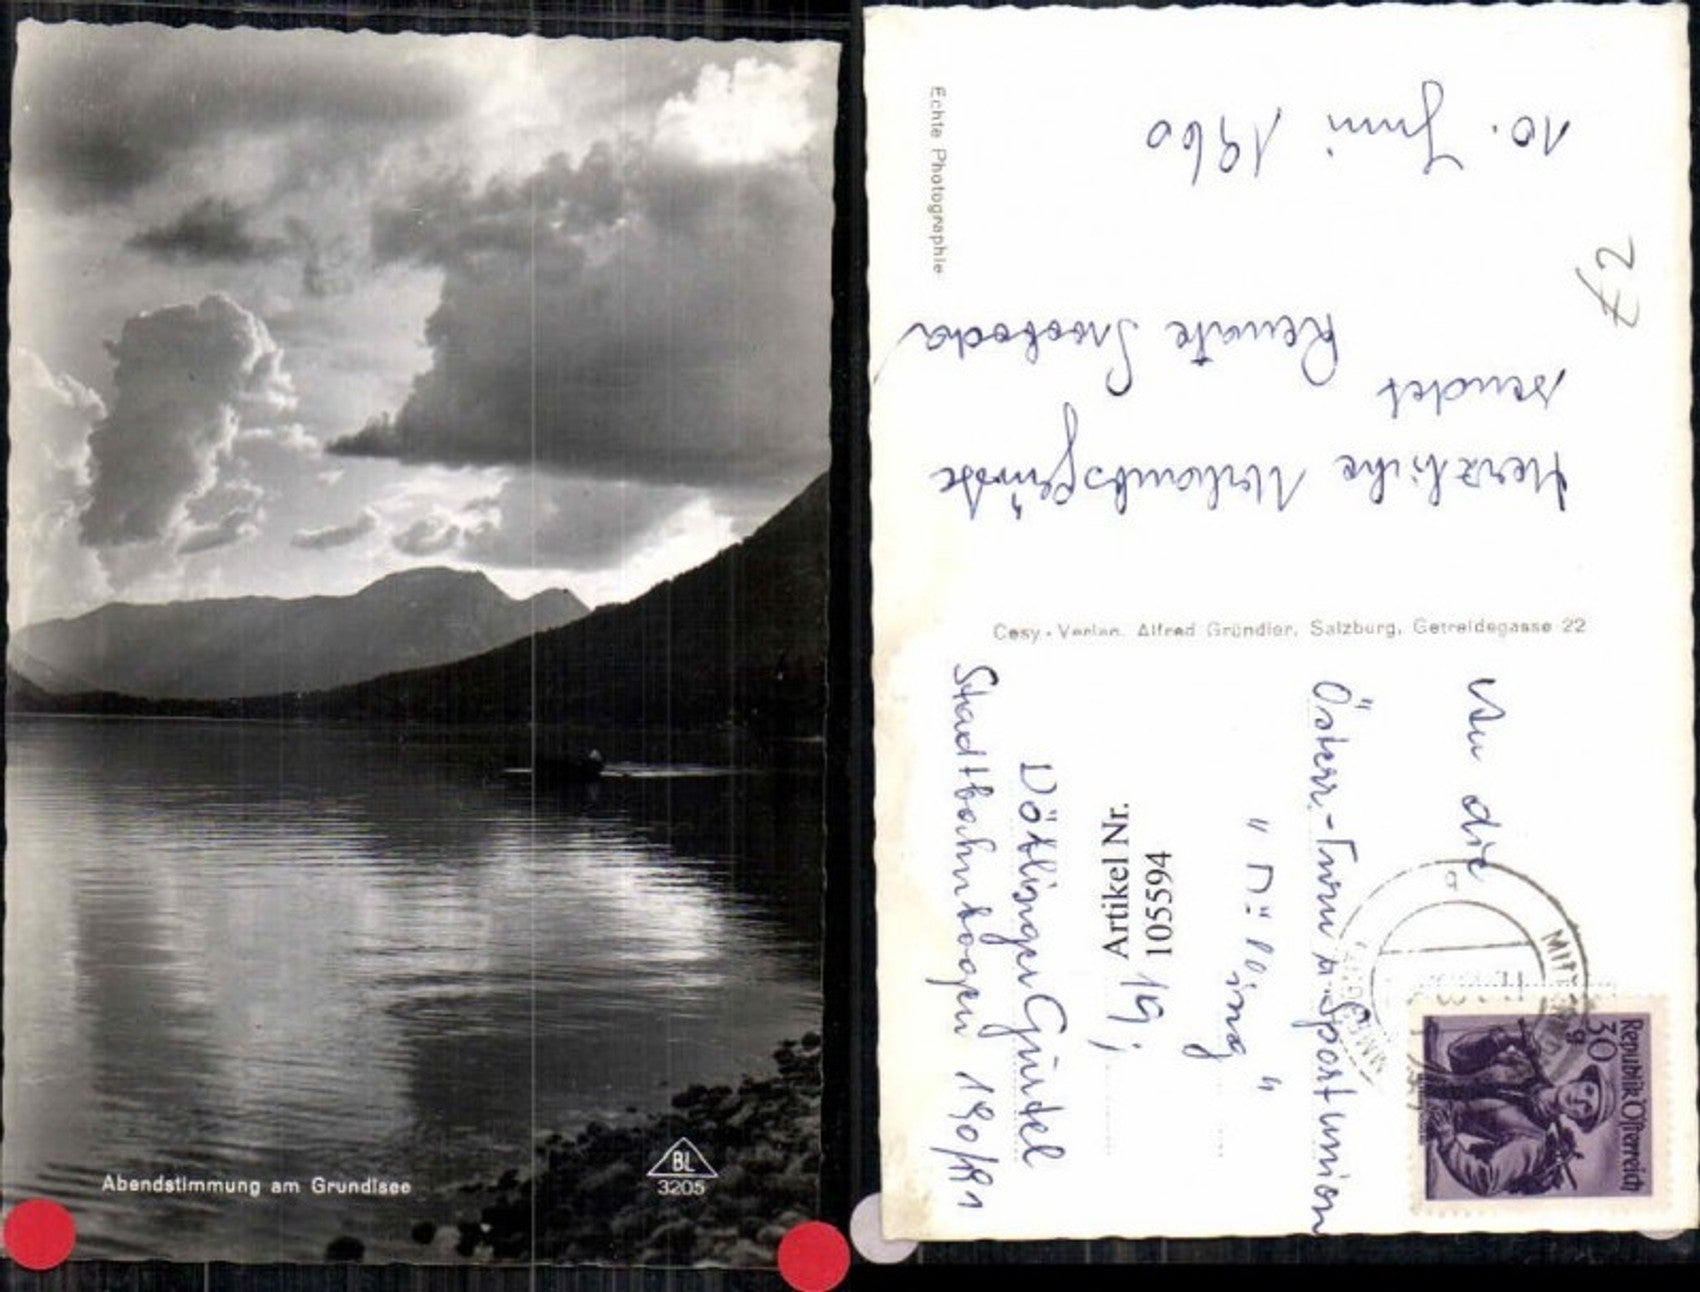 Abendstimmung am Grundlsee
BL
3205
Echte Photographie
10. Juni 1960
Herzliche Urlaubsgrüße
sendet
Renate Swoboda
Cesy-Verlag, Alfred Gründler, Salzburg, Getreidegasse 22
An die
Österr. Turn u. Sportunion
" Döbling "
19;
Döblinger Gürtel
Stadtbahnbogen 190/191
Artikel Nr.
105594
Republik Österreich
30 g